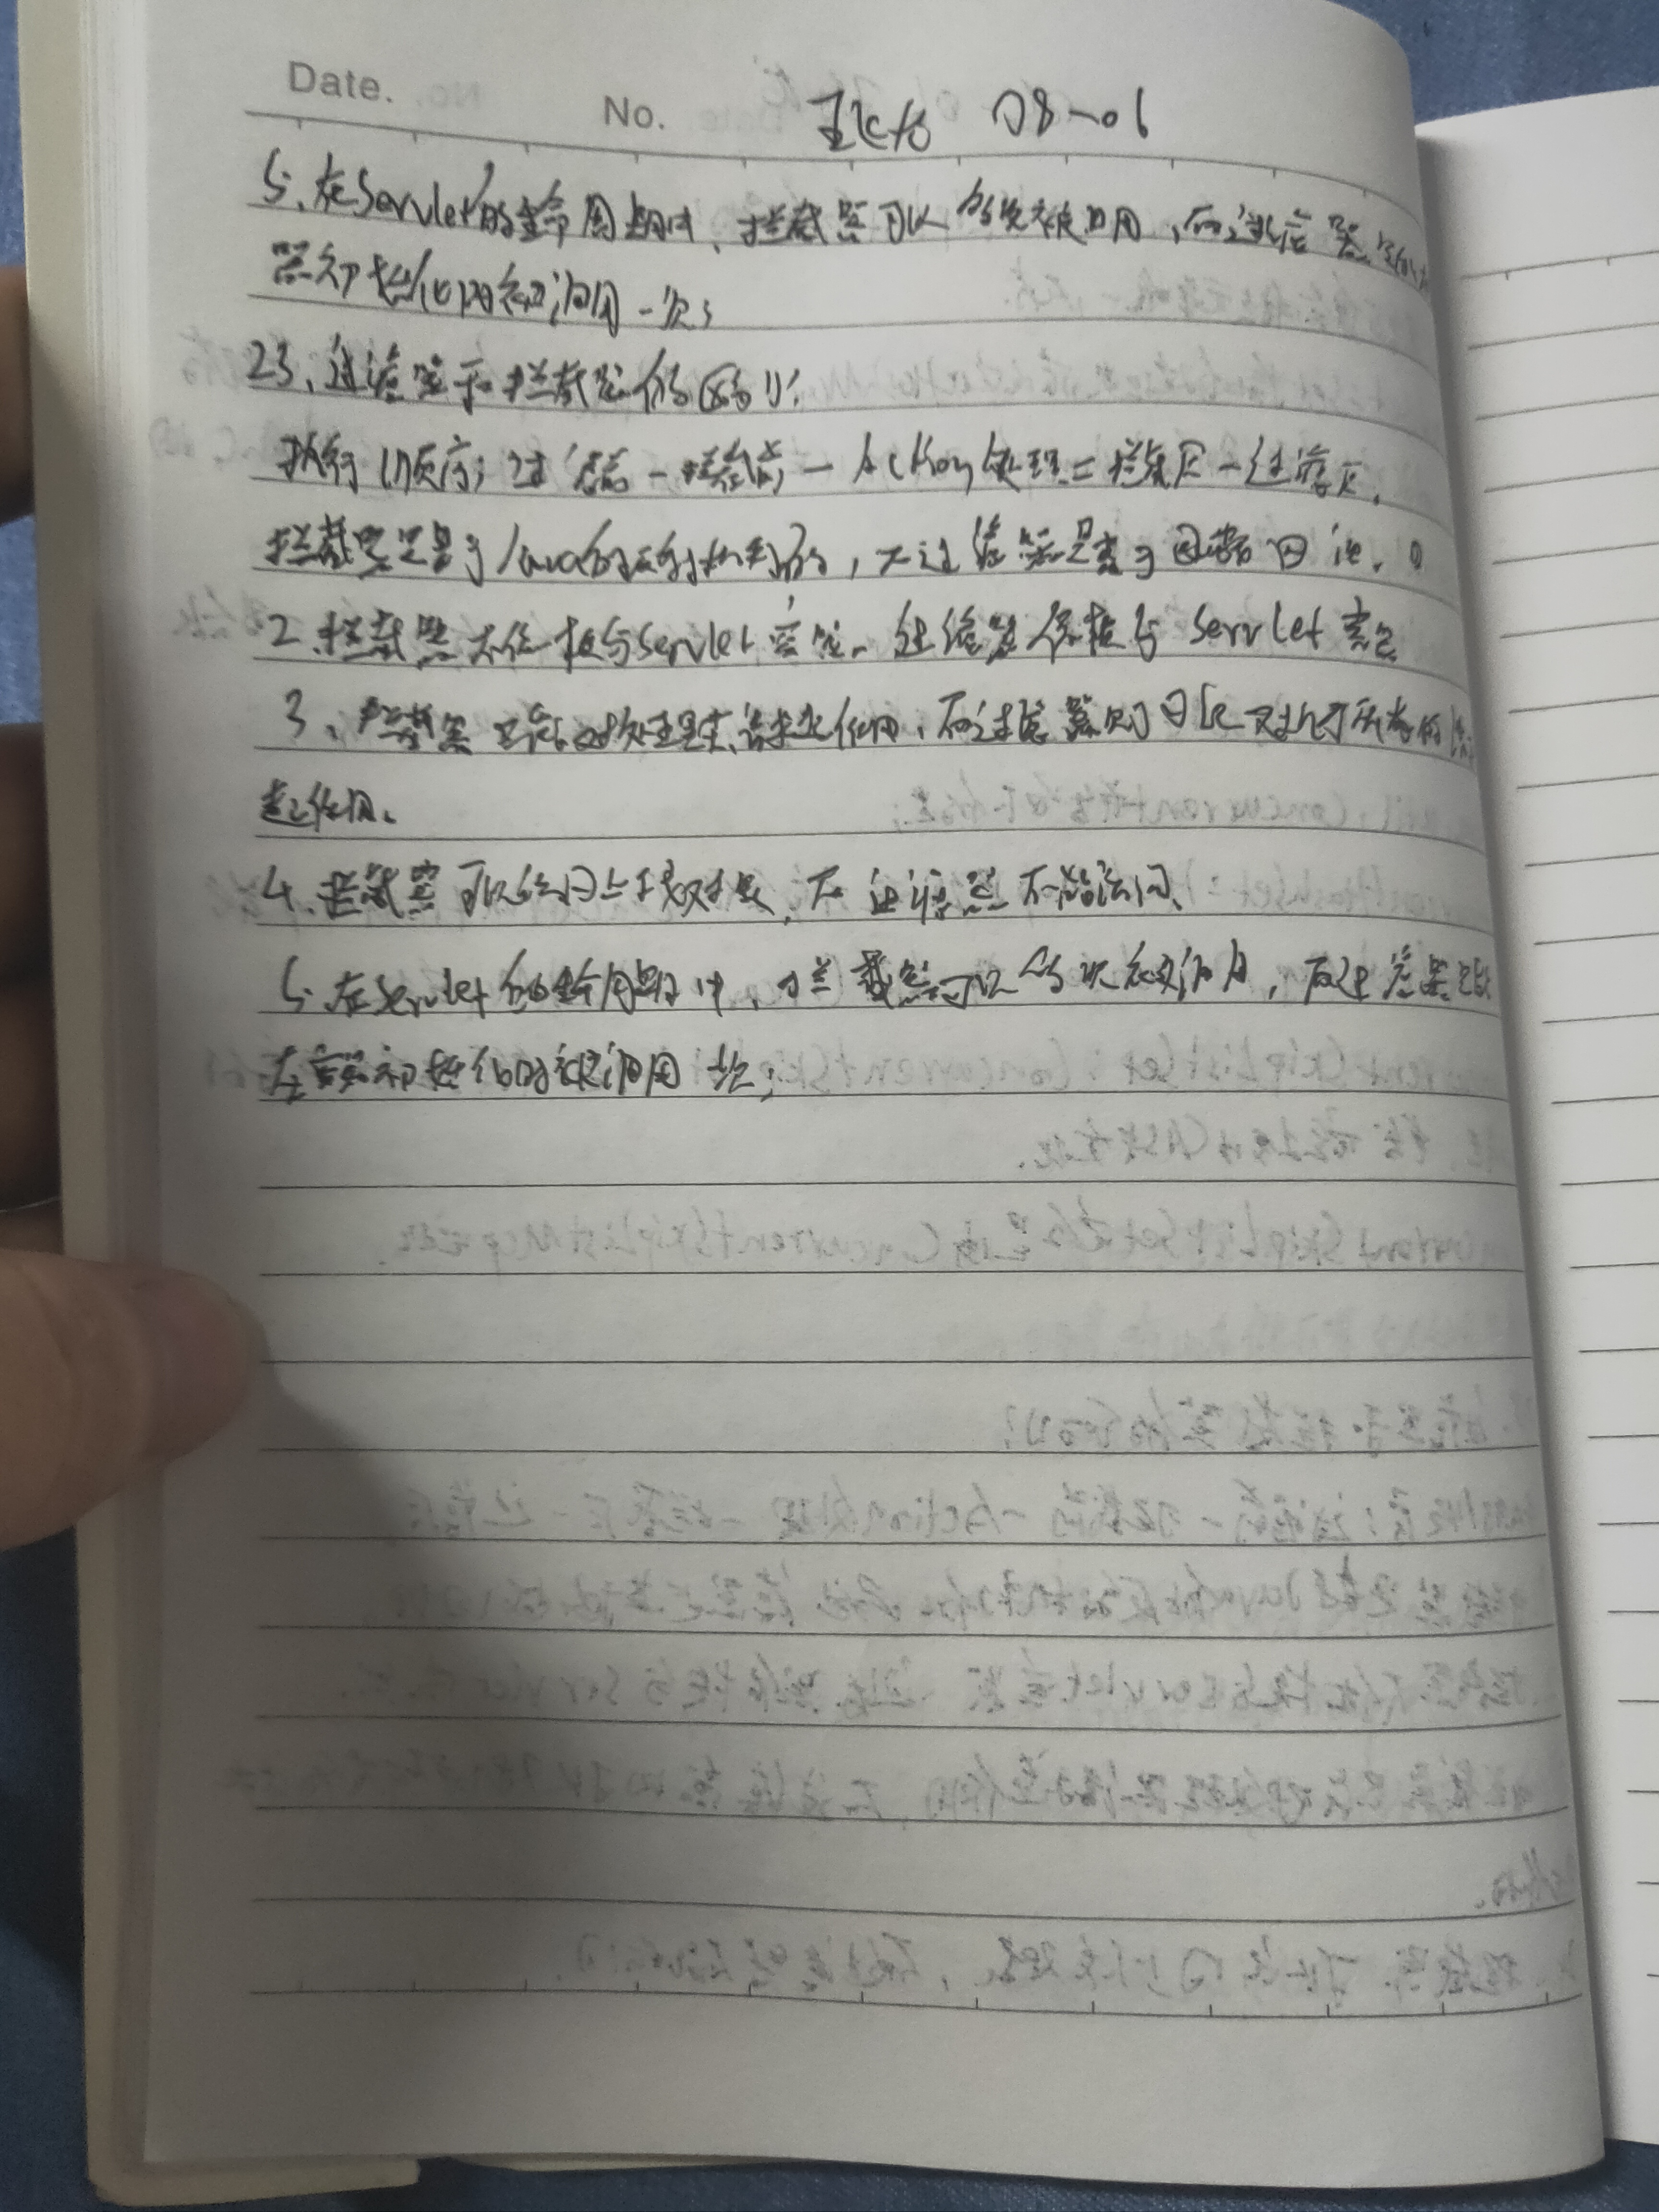 Date.
No. 08-06
5.在Servlet的生命周期中,拦截器可以多次被调用,而过滤器
器初始化时被调用一次;
23、过滤器和拦截器的区别:
执行顺序:过滤前-拦截前-Action处理-拦截后-过滤后.
拦截器是基于Java的反射机制的,而过滤器是基于函数回调.
2.拦截器不依赖与Servlet容器.过滤器依赖与Servlet容器
3、拦截器只能对处理请求起作用,而过滤器则可以对几乎所有的
起作用.
4.拦截器可以访问上下文对象,而过滤器不能访问.
5.在Servlet的生命周期中,拦截器可以多次被调用,而过滤器只能
在容器初始化时被调用一次;